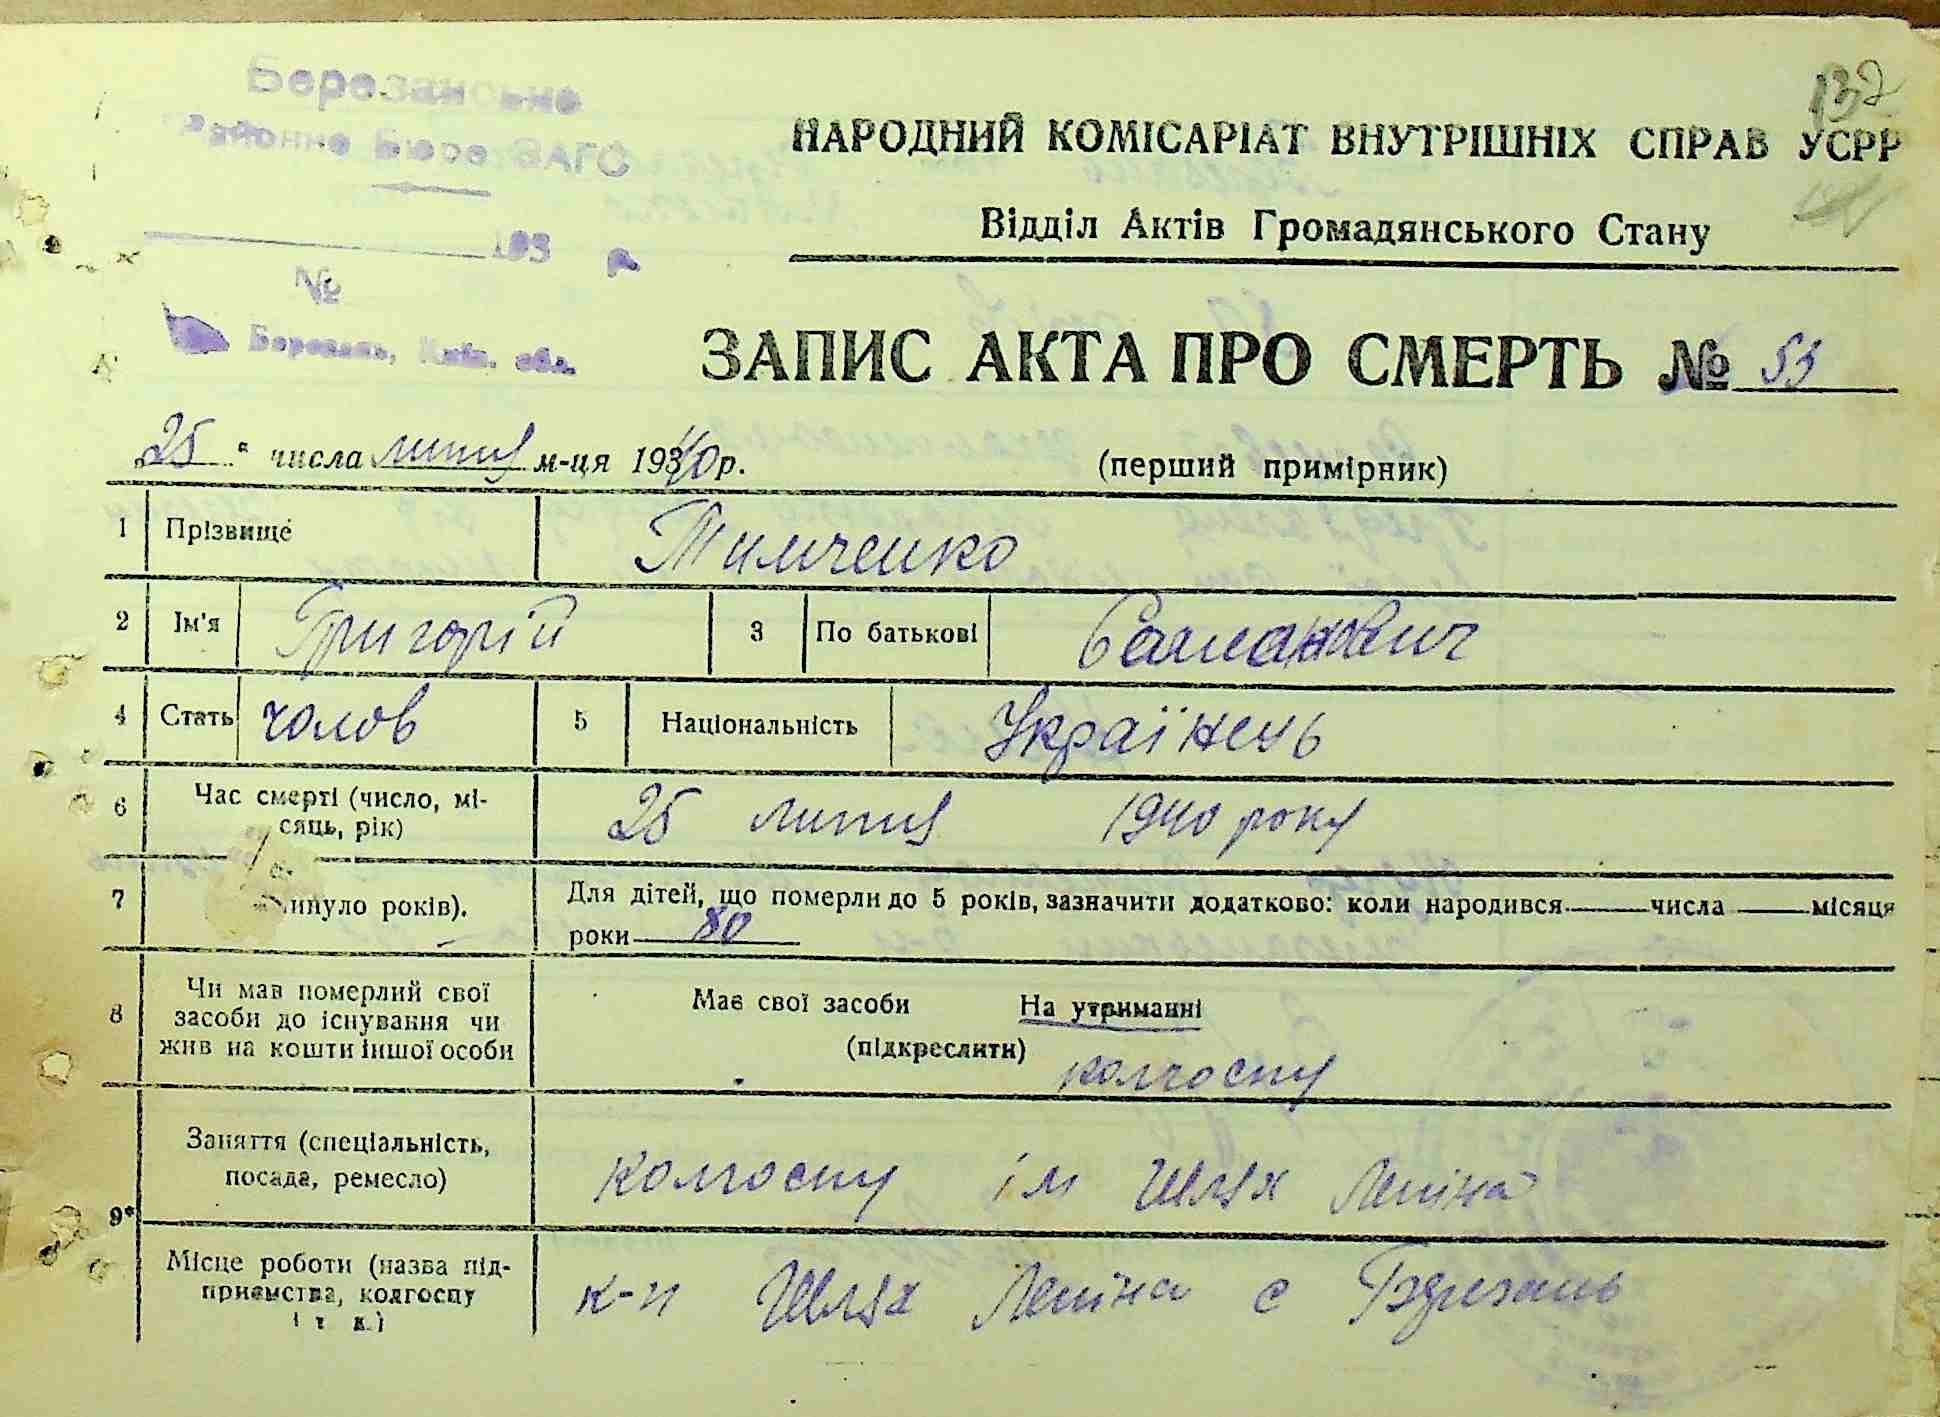 Березанське
Районне Бюро ЗАГС
132
НАРОДНИЙ КОМІСАРІАТ ВНУТРІШНІХ СПРАВ УСРР
Відділ Актів Громадянського Стану
193 р.
№
Березань, Київ. обл.
ЗАПИС АКТА ПРО СМЕРТЬ № 53
„25" числа липня м-ця 1940 р. (перший примірник)
1 Прізвище Тимченко
2 Ім'я Григорій 3 По батькові
4 Стать чолов 5 Національність Українець
6 Час смерті (число, мі-
сяць, рік) 25 липня 1940 року
7 минуло років). Для дітей, що померли до 5 років, зазначити додатково: коли народився числа місяця
роки 80
8 Чи мав померлий свої
засоби до існування чи
жив на кошти іншої особи
Має свої засоби На утриманні
(підкреслити)
колгоспу
9* Заняття (спеціальність,
посада, ремесло) колгоспу ім Шлях Леніна
Місце роботи (назва під-
приємства, колгоспу
і т. д.) к-п Шлях Леніна с Березань